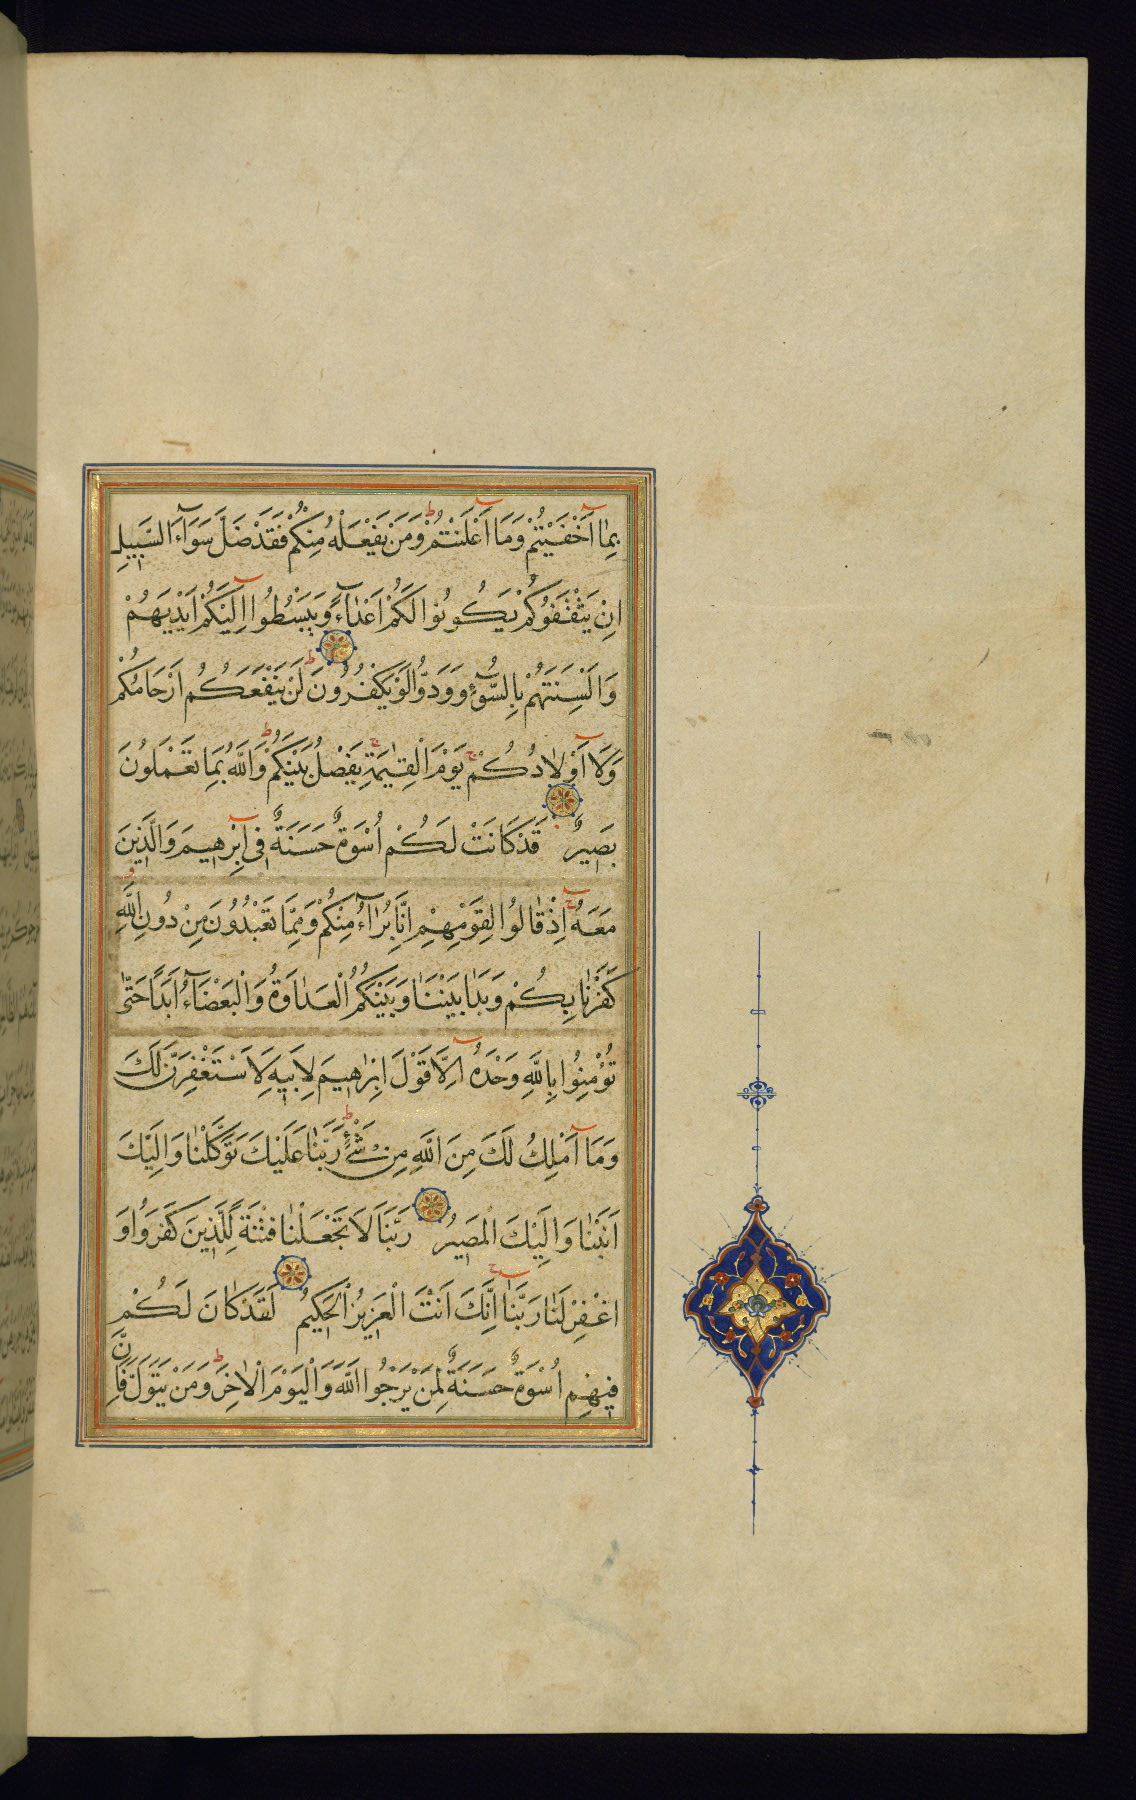 بِمَا أَخْفَيْتُمْ وَمَا أَعْلَنْتُمْ وَمَنْ يَفْعَلْهُ مِنْكُمْ فَقَدْ ضَلَّ سَوَآءَ السَّبِيلِ
اِنْ يَثْقَفُوكُمْ يَكُونُوا لَكُمْ اَعْدَآءً وَيَبْسُطُوا اِلَيْكُمْ اَيْدِيَهُمْ
وَاَلْسِنَتَهُمْ بِالسُّوٓءِ وَوَدُّوا لَوْ يَكْفُرُونَ لَنْ يَنْفَعَكُمْ اَرْحَامُكُمْ
وَلَا اَوْلَادُكُمْ يَوْمَ الْقِيٰمَةِ يَفْصِلُ بَيْنَكُمْ وَاللّٰهُ بِمَا تَعْمَلُونَ
بَصِيرٌ قَدْ كَانَتْ لَكُمْ اُسْوَةٌ حَسَنَةٌ فِى اِبْرٰهِيمَ وَالَّذِينَ
مَعَهُ اِذْ قَالُوا لِقَوْمِهِمْ اِنَّا بُرَآءُ مِنْكُمْ وَمِمَّا تَعْبُدُونَ مِنْ دُونِ اللّٰهِ
كَفَرْنَا بِكُمْ وَبَدَا بَيْنَنَا وَبَيْنَكُمُ الْعَدَاوَةُ وَالْبَغْضَآءُ اَبَدًا حَتّٰى
تُؤْمِنُوا بِاللّٰهِ وَحْدَهُ اِلَّا قَوْلَ اِبْرٰهِيمَ لِاَبِيهِ لَاَسْتَغْفِرَنَّ لَكَ
وَمَا اَمْلِكُ لَكَ مِنَ اللّٰهِ مِنْ شَىْءٍ رَبَّنَا عَلَيْكَ تَوَكَّلْنَا وَاِلَيْكَ
اَنَبْنَا وَاِلَيْكَ الْمَصِيرُ رَبَّنَا لَا تَجْعَلْنَا فِتْنَةً لِلَّذِينَ كَفَرُوا وَ
اغْفِرْ لَنَا رَبَّنَا اِنَّكَ اَنْتَ الْعَزِيزُ الْحَكِيمُ لَقَدْ كَانَ لَكُمْ
فِيهِمْ اُسْوَةٌ حَسَنَةٌ لِمَنْ يَرْجُوا اللّٰهَ وَالْيَوْمَ الْاٰخِرَ وَمَنْ يَتَوَلَّ فَاِنَّ